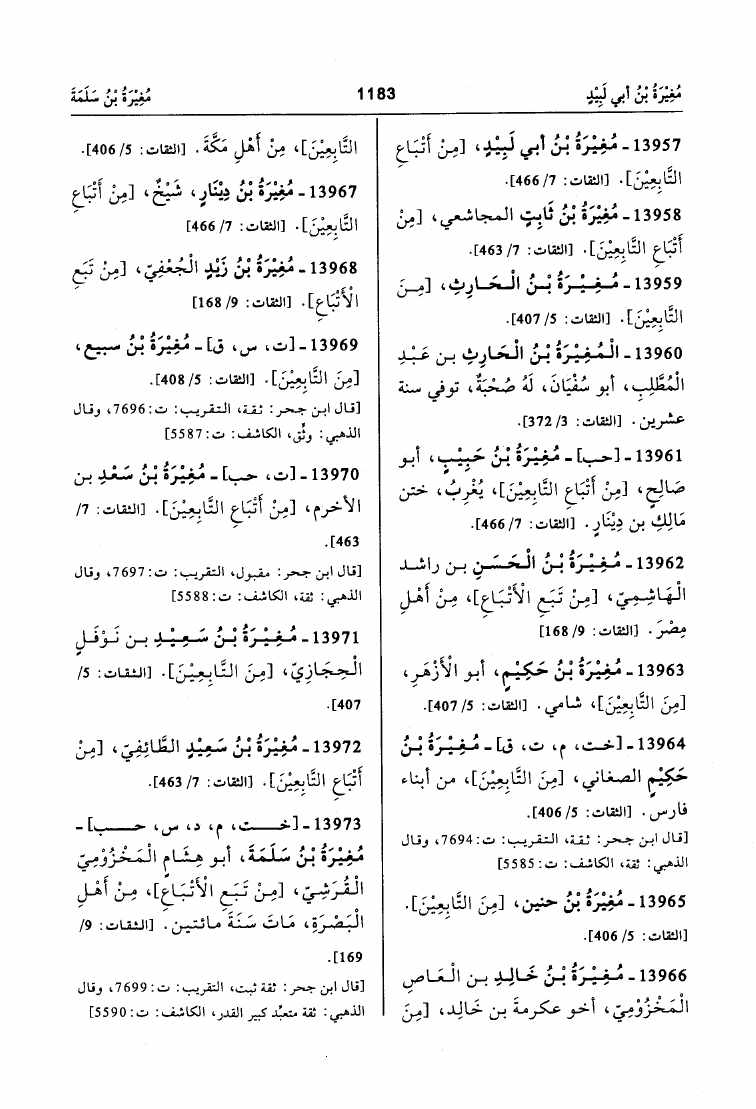 مُغِيْرَةُ بْنُ أبي لَبِيْدٍ 1183 مُغِيْرَةُ بْنُ سَلَمَةَ
13957 - مُغِيْرَةُ بْنُ أبي لَبِيْدٍ، [مِنْ أَتْبَاعِ
التَّابِعِيْنَ]. [الثقات: 7/ 466].
13958 - مُغِيْرَةُ بْنُ ثَابِتٍ المجاشعي، [مِنْ
أَتْبَاعِ التَّابِعِيْنَ]. [الثقات: 7/ 463].
13959 - مُغِيْرَةُ بْنُ الْحَارِثِ، [مِنَ
التَّابِعِيْنَ]. [الثقات: 5/ 407].
13960 - الْمُغِيْرَةُ بْنُ الْحَارِثِ بن عَبْدِ
الْمُطَّلِبِ، أبو سُفْيَانَ، لَهُ صُحْبَةٌ، توفي سنة
عشرين. [الثقات: 3/ 372].
13961 - [حب] - مُغِيْرَةُ بْنُ حَبِيْبٍ، أبو
صَالِحٍ، [مِنْ أَتْبَاعِ التَّابِعِيْنَ]، يُغْرِبُ، ختن
مَالِكِ بن دِيْنَارٍ. [الثقات: 7/ 466].
13962 - مُغِيْرَةُ بْنُ الْحَسَنِ بن راشد
الْهَاشِمِيّ، [مِنْ تَبَعِ الْأَتْبَاعِ]، مِنْ أَهْلِ
مِصْرَ. [الثقات: 9/ 168]
13963 - مُغِيْرَةُ بْنُ حَكِيْمٍ، أبو الْأَزْهَرِ،
[مِنَ التَّابِعِيْنَ]، شامي. [الثقات: 5/ 407].
13964 - [خت، م، ت، ق] - مُغِيْرَةُ بْنُ
حَكِيْمٍ الصغاني، [مِنَ التَّابِعِيْنَ]، من أبناء
فارس. [الثقات: 5/ 406].
[قال ابن حجر: ثقة، التقريب: ت: 7694، وقال
الذهبي: ثقة، الكاشف: ت: 5585]
13965 - مُغِيْرَةُ بْنُ حنين، [مِنَ التَّابِعِيْنَ].
[الثقات: 5/ 406].
13966 - مُغِيْرَةُ بْنُ خَالِدِ بن الْعَاصِ
الْمَخْزُوْمِيّ، أخو عكرمةَ بن خَالِد، [مِنَ
التَّابِعِيْنَ]، مِنْ أَهْلِ مَكَّةَ. [الثقات: 5/ 406].
13967 - مُغِيْرَةُ بْنُ دِيْنَارٍ، شَيْخٌ، [مِنْ أَتْبَاعِ
التَّابِعِيْنَ]. [الثقات: 7/ 466]
13968 - مُغِيْرَةُ بْنُ زَيْدٍ الْجُعْفِيّ، [مِنْ تَبَعِ
الْأَتْبَاعِ]. [الثقات: 9/ 168]
13969 - [ت، س، ق] - مُغِيْرَةُ بْنُ سبيع،
[مِنَ التَّابِعِيْنَ]. [الثقات: 5/ 408].
[قال ابن حجر: ثقة، التقريب: ت: 7696، وقال
الذهبي: وثّق، الكاشف: ت: 5587]
13970 - [ت، حب] - مُغِيْرَةُ بْنُ سَعْدِ بن
الأخرم، [مِنْ أَتْبَاعِ التَّابِعِيْنَ]. [الثقات: 7/
463].
[قال ابن حجر: مقبول، التقريب: ت: 7697، وقال
الذهبي: ثقة، الكاشف: ت: 5588]
13971 - مُغِيْرَةُ بْنُ سَعِيْدِ بن نَوْفَلٍ
الْحِجَازِيّ، [مِنَ التَّابِعِيْنَ]. [الثقات: 5/
407].
13972 - مُغِيْرَةُ بْنُ سَعِيْدٍ الطَّائِفِيّ، [مِنْ
أَتْبَاعِ التَّابِعِيْنَ]. [الثقات: 7/ 463].
13973 - [خت، م، د، س، حب] -
مُغِيْرَةُ بْنُ سَلَمَةَ، أبو هِشَامٍ الْمَخْزُوْمِيّ
الْقُرَشِيّ، [مِنْ تَبَعِ الْأَتْبَاعِ]، مِنْ أَهْلِ
الْبَصْرَةِ، مَاتَ سَنَةَ مائتين. [الثقات: 9/
169].
[قال ابن حجر: ثقة ثبت، التقريب: ت: 7699، وقال
الذهبي: ثقة متعبّد كبير القدر، الكاشف: ت: 5590]